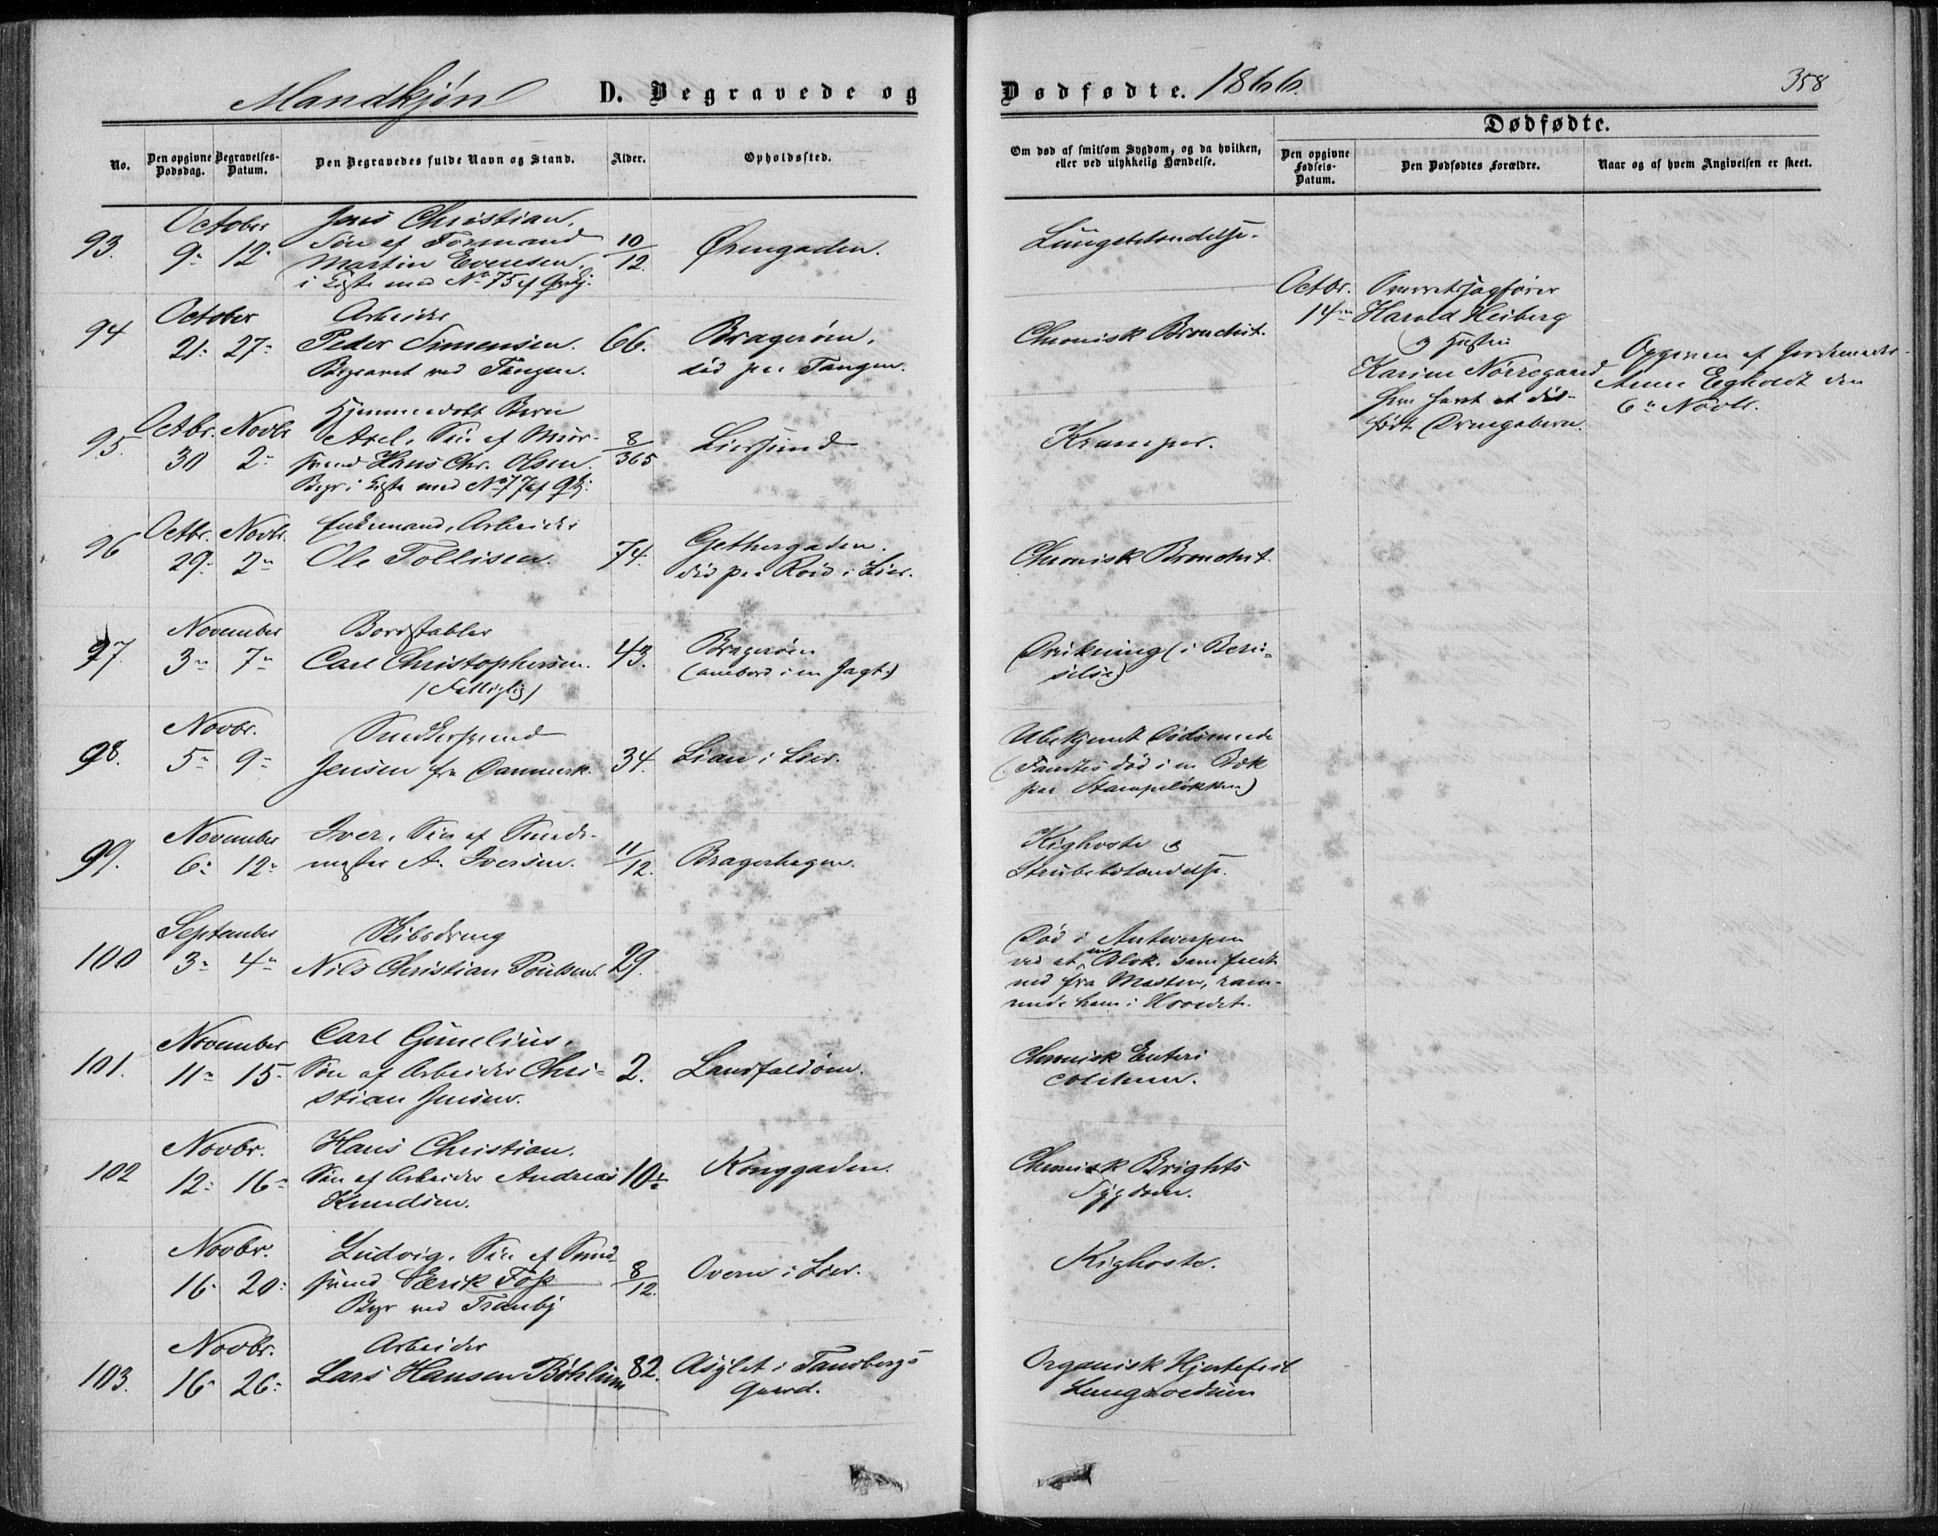 Mandkjøn D. Begravede og Dødfødte. 1866. 358
No.
Den opgivne Dødsdag.
Begravelses-Datum.
Den Begravedes fulde Navn og Stand.
Alder.
Opholdssted.
Om død af smitsom Sygdom, og da hvilken, eller ved ulykkelig Hændelse.
Dødfødte.
Den opgivne Fødsels-Datum.
Den Dødfødtes Forældre.
Naar og af hvem Angivelsen er skeet.
93.
October
9. 12.
Jens Christian,
Søn af Formand
Martin Evensen,
i Kiste med No 75 af
10/12
Ørengaden.
Lungebetændelse.
94
October
21. 27.
Arbeider
Peder Simensen.
Begravet ved Tangen.
66.
Bragerøen,
død paa Tangen.
Chronisk Bronchit.
Octbr.
14de
Overretssagfører
Harald Heiberg
og Hustru
Karine Nørregaard
Opgiven af Jordemoder
Anne Egholdt den
6te Novbr.
Drengebarn.
95.
Octbr. Novbr
30 2
Hjemmedøbt Barn
Axel, Søn af Mur-
svend Hans Chr. Olsen.
Begr. i Kiste med No 77 af
8/365
Liersund
Kramper.
96
Octbr. Novbr.
29. 2
Enkemand, Arbeider
Ole Tollisen.
74.
Gethergaden.
død paa i Lier.
Chronisk Bronchit.
97.
November
3 7
Bordstabler
Carl Christophersen.
(Fattiglig)
43.
Bragerøen
(ombord i en Jagt)
Drukning (i Beru-
selse)
98.
Novbr.
5 9
Snedkersvend
Jensen fra Danmark.
34.
Lian i Lier.
Ubekjendt Dødsmaade
(Fandtes død i en Bæk
paa Stampeløkken)
99.
November
6. 12.
Iver, Søn af Smed-
mester A. Iversen.
11/12.
Bragerhagen.
Kighoste og
Strubebetændelse.
100
September
3 4
Skibsdreng
Nils Christian Poulsen.
29.
Død i Antwerpen
ved at en Blok, som faldt
ned fra Masten, ram-
mede ham i Hovedet.
101.
November
11 15
Carl Gunelius,
Søn af Arbeider Chri-
stian Jensen.
2.
Landfaldøen.
Chronisk Entero
colitum.
102
Novbr.
12. 16
Hans Christian.
Søn af Arbeider Andreas
Knudsen.
10
Konggaden.
Chronisk Brights
Sygdom.
Novbr.
16. 20.
Ludvig, Søn af Smed-
svend Erik Foss
Begr ved Tranby
8/12.
Overn i Lier.
Kighoste.
103.
Novbr.
16. 26.
Arbeider
Lars Hansen Bøhlum
82.
Asylet i Tandbergs
Gaard.
Organisk Hjertefeil
Lungeoedem